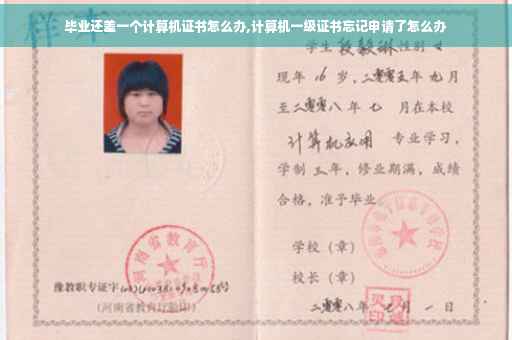 毕业还差一个计算机证书怎么办,计算机一级证书忘记申请了怎么办
样本
学生 段毅琳 性别 女
现年 16 岁，二零零五年 九月
至二零零八年 七 月在本校
计算机应用 专业学习，
学制 三年，修业期满，成绩
合格，准予毕业
学校（章）
河南省教育厅
校长（章）
豫教职专证字
(河南省教育厅验印)
二零零八年 七月 一日